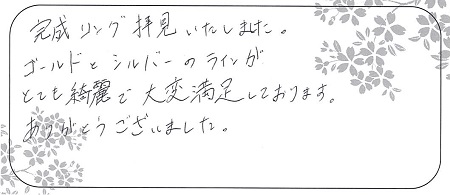 完成リング拝見いたしました。
ゴールドとシルバーのラインが
とても綺麗で大変満足しております。
ありがとうございました。